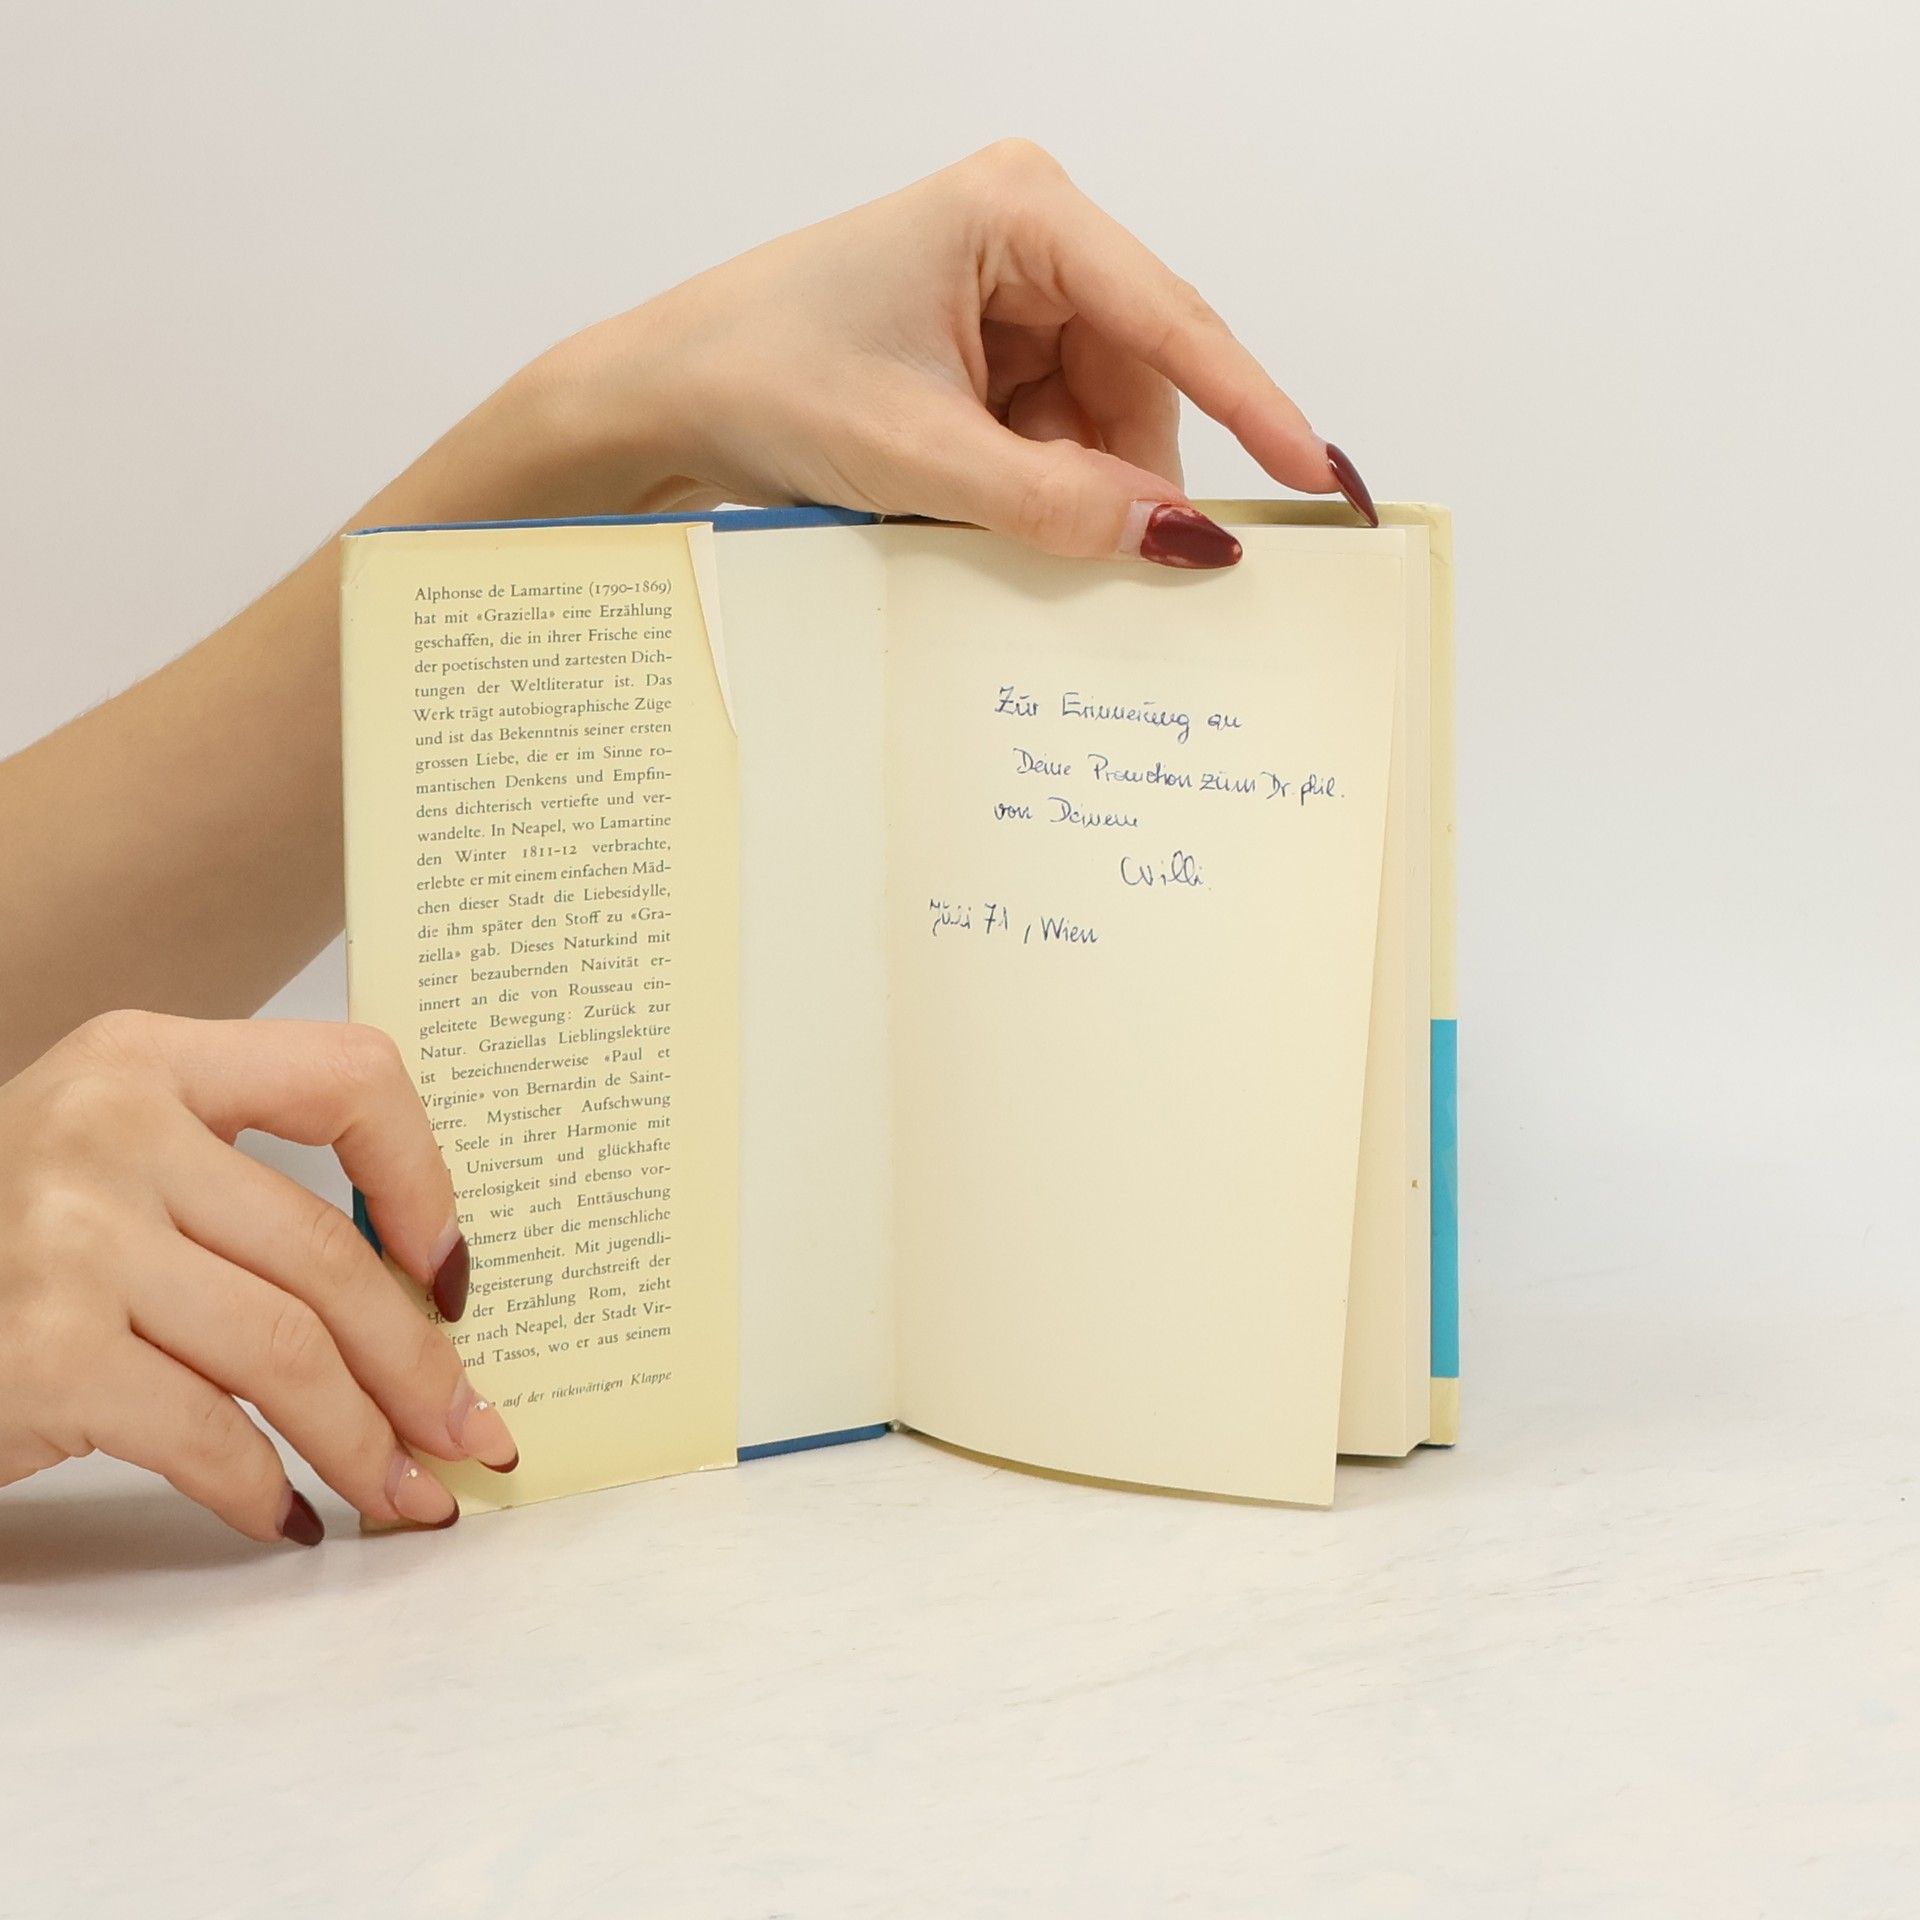 Alphonse de Lamartine (1790-1869)
hat mit «Graziella» eine Erzählung
geschaffen, die in ihrer Frische eine
der poetischsten und zartesten Dich-
tungen der Weltliteratur ist. Das
Werk trägt autobiographische Züge
und ist das Bekenntnis seiner ersten
grossen Liebe, die er im Sinne ro-
mantischen Denkens und Empfin-
dens dichterisch vertiefte und ver-
wandelte. In Neapel, wo Lamartine
den Winter 1811-12 verbrachte,
erlebte er mit einem einfachen Mäd-
chen dieser Stadt die Liebesidylle,
die ihm später den Stoff zu «Gra-
ziella» gab. Dieses Naturkind mit
seiner bezaubernden Naivität er-
innert an die von Rousseau ein-
geleitete Bewegung: Zurück zur
Natur. Graziellas Lieblingslektüre
ist bezeichnenderweise «Paul et
Virginie» von Bernardin de Saint-
ierre. Mystischer Aufschwung
r Seele in ihrer Harmonie mit
Universum und glückhafte
werelosigkeit sind ebenso vor-
en wie auch Enttäuschung
chmerz über die menschliche
lkommenheit. Mit jugendli-
Begeisterung durchstreift der
der Erzählung Rom, zieht
iter nach Neapel, der Stadt Vir-
und Tassos, wo er aus seinem
auf der rückwärtigen Klappe
Zur Erinnerung an
Deine Promotion zum Dr. phil.
von Deinem
Willi.
71, Wien